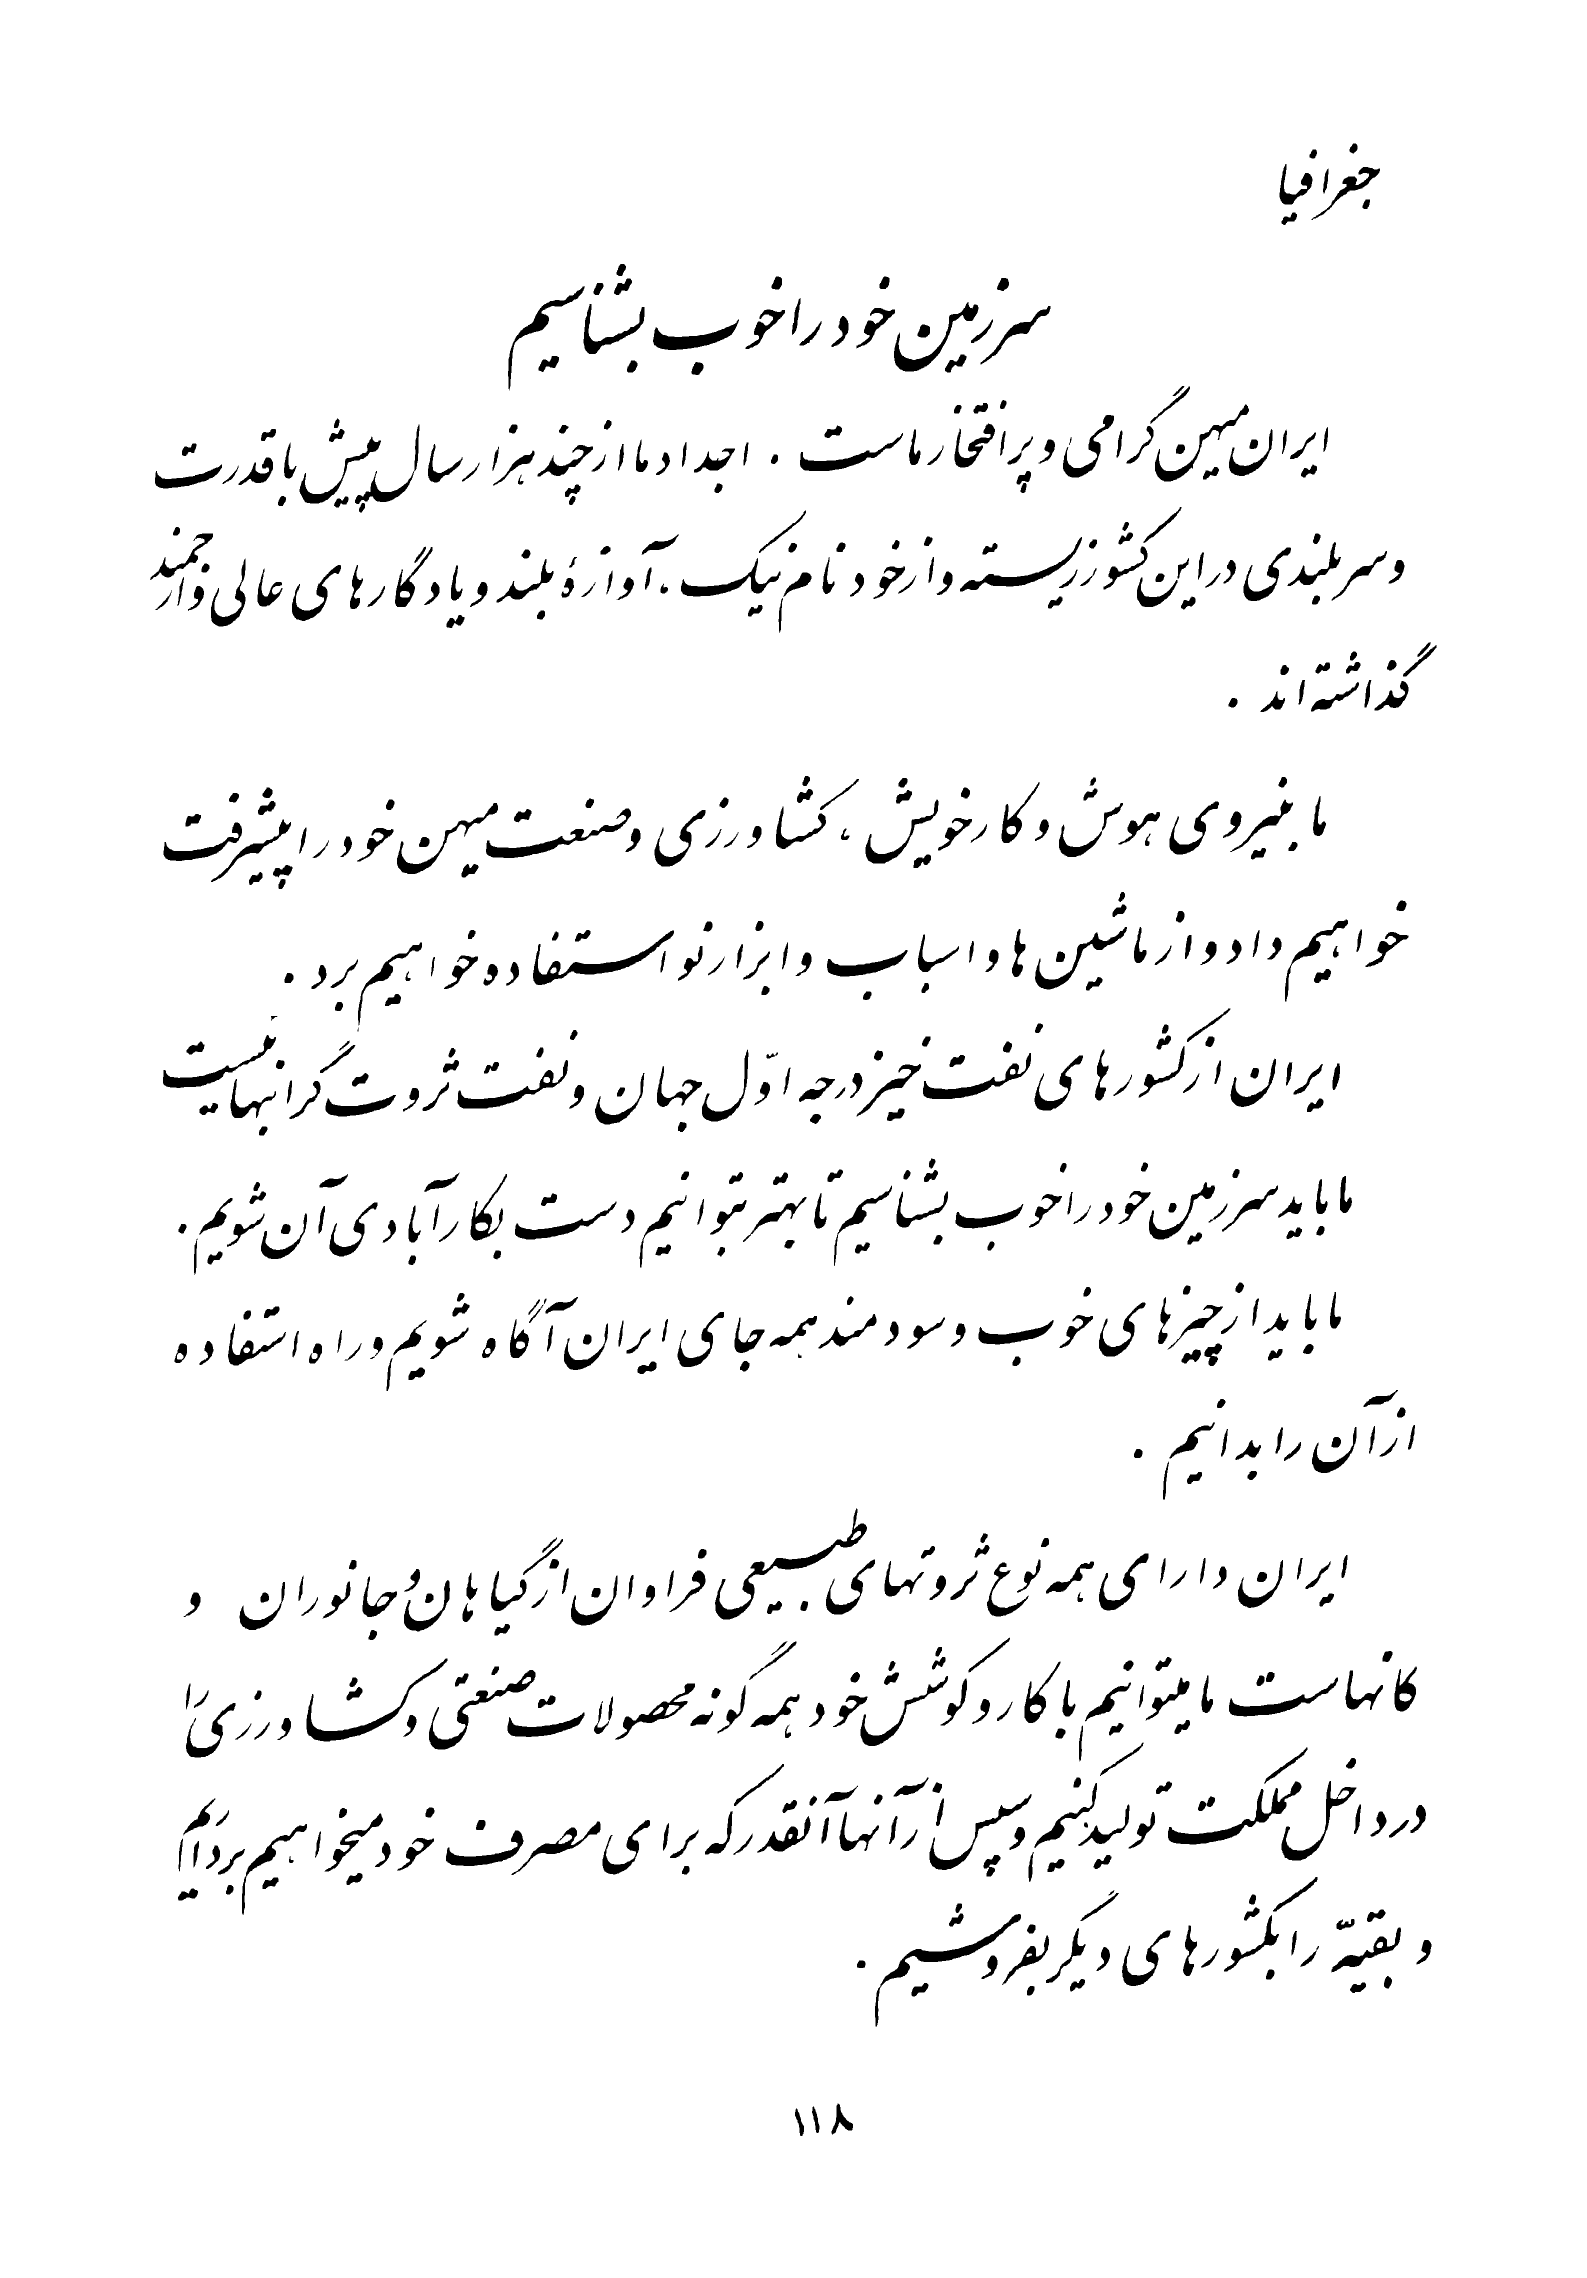 جغرافیا
سرزمین خود را خوب بشناسیم
ایران میهن گرامی و پر افتخار ماست . اجداد ما از چند هزار سال پیش با قدرت
و سربلندی در این کشور زیسته و از خود نام نیک ، آوازهٔ بلند و یادگارهای عالی و ارجمند
گذاشته اند .
ما بنیروی هوش و کار خویش ، کشاورزی و صنعت میهن خود را پیشرفت
خواهیم داد و از ماشین ها و اسباب و ابزار نو استفاده خواهیم برد .
ایران از کشورهای نفت خیز درجه اوّل جهان و نفت ثروت گرانبهائیست
ما باید سرزمین خود را خوب بشناسیم تا بهتر بتوانیم دست بکار آبادی آن شویم .
ما باید از چیزهای خوب و سودمند همه جای ایران آگاه شویم و راه استفاده
از آن را بدانیم .
ایران دارای همه نوع ثروتهای طبیعی فراوان از گیاهان و جانوران و
کانهاست ما میتوانیم با کار و کوشش خود همه گونه محصولات صنعتی و کشاورزی را
در داخل مملکت تولید کنیم و سپس از آنها آنقدر که برای مصرف خود میخواهیم برداریم
و بقیّه را بکشورهای دیگر بفروشیم .
۱۱۸